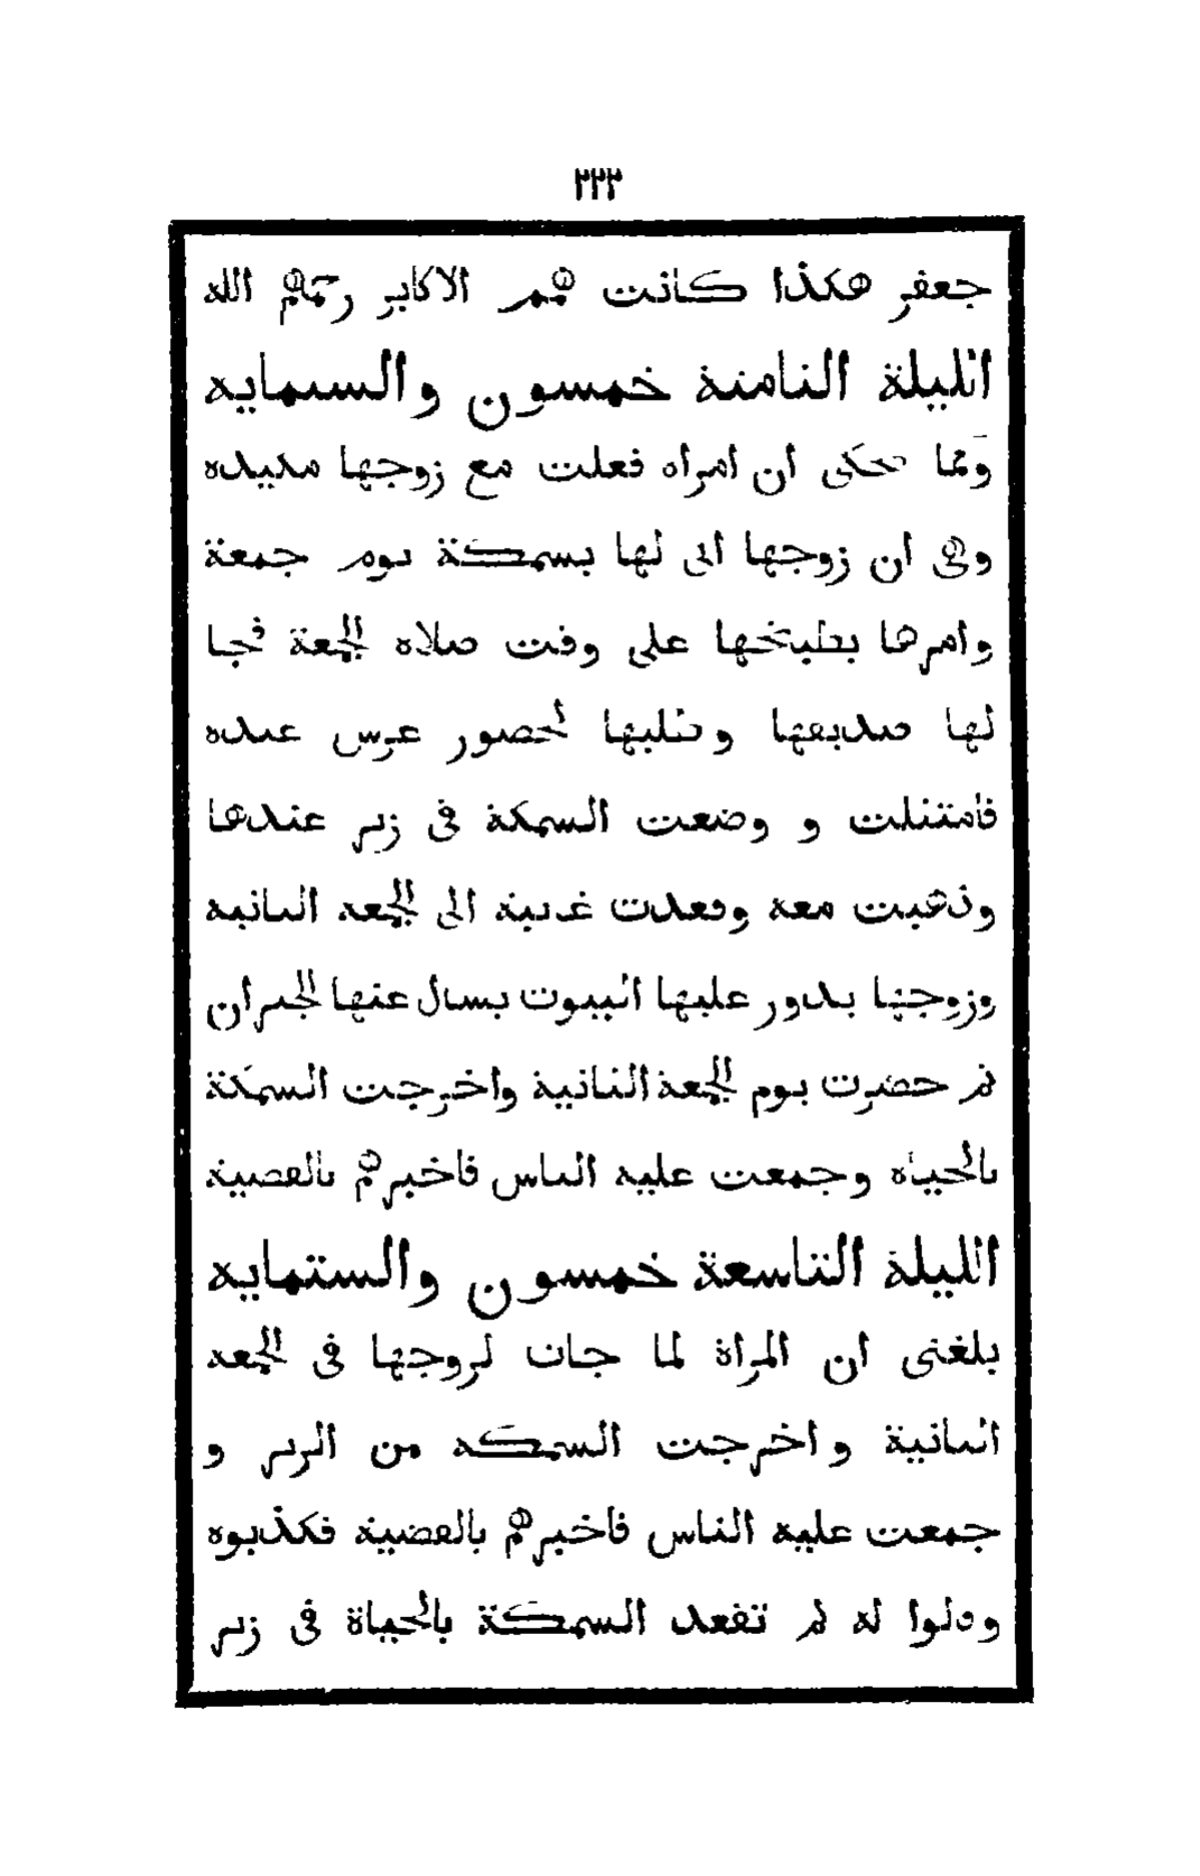 ٢٢٣
جعفر هكذا كانت همم الاكابر رحمهم الله
الليلة الثامنة خمسون والستمايه
ومما تحكى ان امراه فعلت مع زوجها مكيده
وهى ان زوجها اتى لها بسمكة يوم جمعة
وامرها بطبيخها على وقت صلاه الجمعة فجا
لها صديقها وطلبها لحضور عرس عنده
فامتثلت و وضعت السمكة فى زير عندها
وذهبت معه وقعدت غريبة الى الجمعه الثانيه
وزوجها يدور عليها البيوت يسال عنها الجيران
ثم حضرت يوم الجمعة الثانية واخرجت السمكة
بالحياه وجمعت عليه الناس فاخبرهم بالقصية
الليلة التاسعة خمسون والستمايه
بلغنى ان المراة لما جات لزوجها فى الجمعه
الثانية واخرجت السمكه من الزير و
جمعت عليه الناس فاخبرهم بالقضية فكذبوه
وقلوا له لم تقعد السمكة بالحياة فى زير